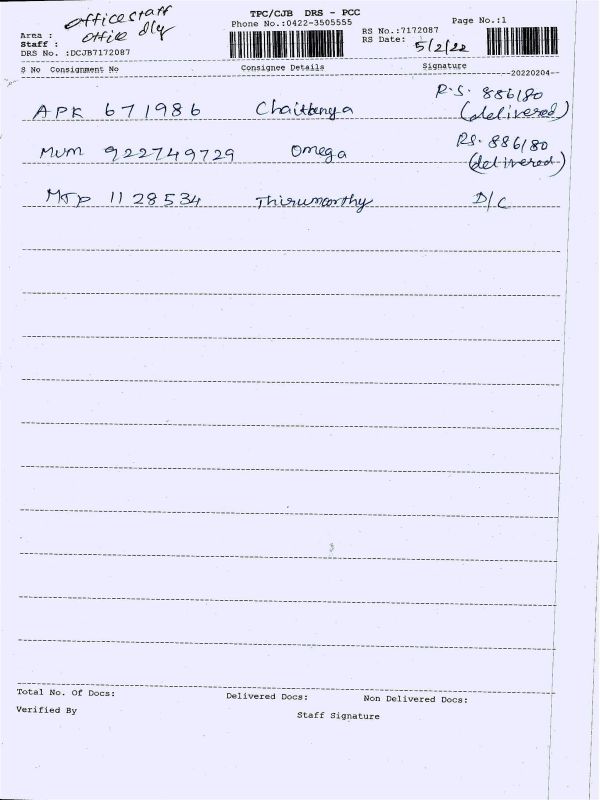 officestaff
office dly
TPC/CJB DRS - PCC
Phone No.:0422-3505555
Page No.:1
Area :
Staff :
DRS No. :DCJB7172087
RS No.:7172087
RS Date: 5/2/22
S No Consignment No Consignee Details Signature
--20220204--
APK 671986 Chaitanya R.S. 886/80 (delivered)
MUM 922749729 Omega RS. 886/80 (delivered)
MTP 1128534 Thirumoorthy D/C
Total No. Of Docs: Delivered Docs: Non Delivered Docs:
Verified By Staff Signature